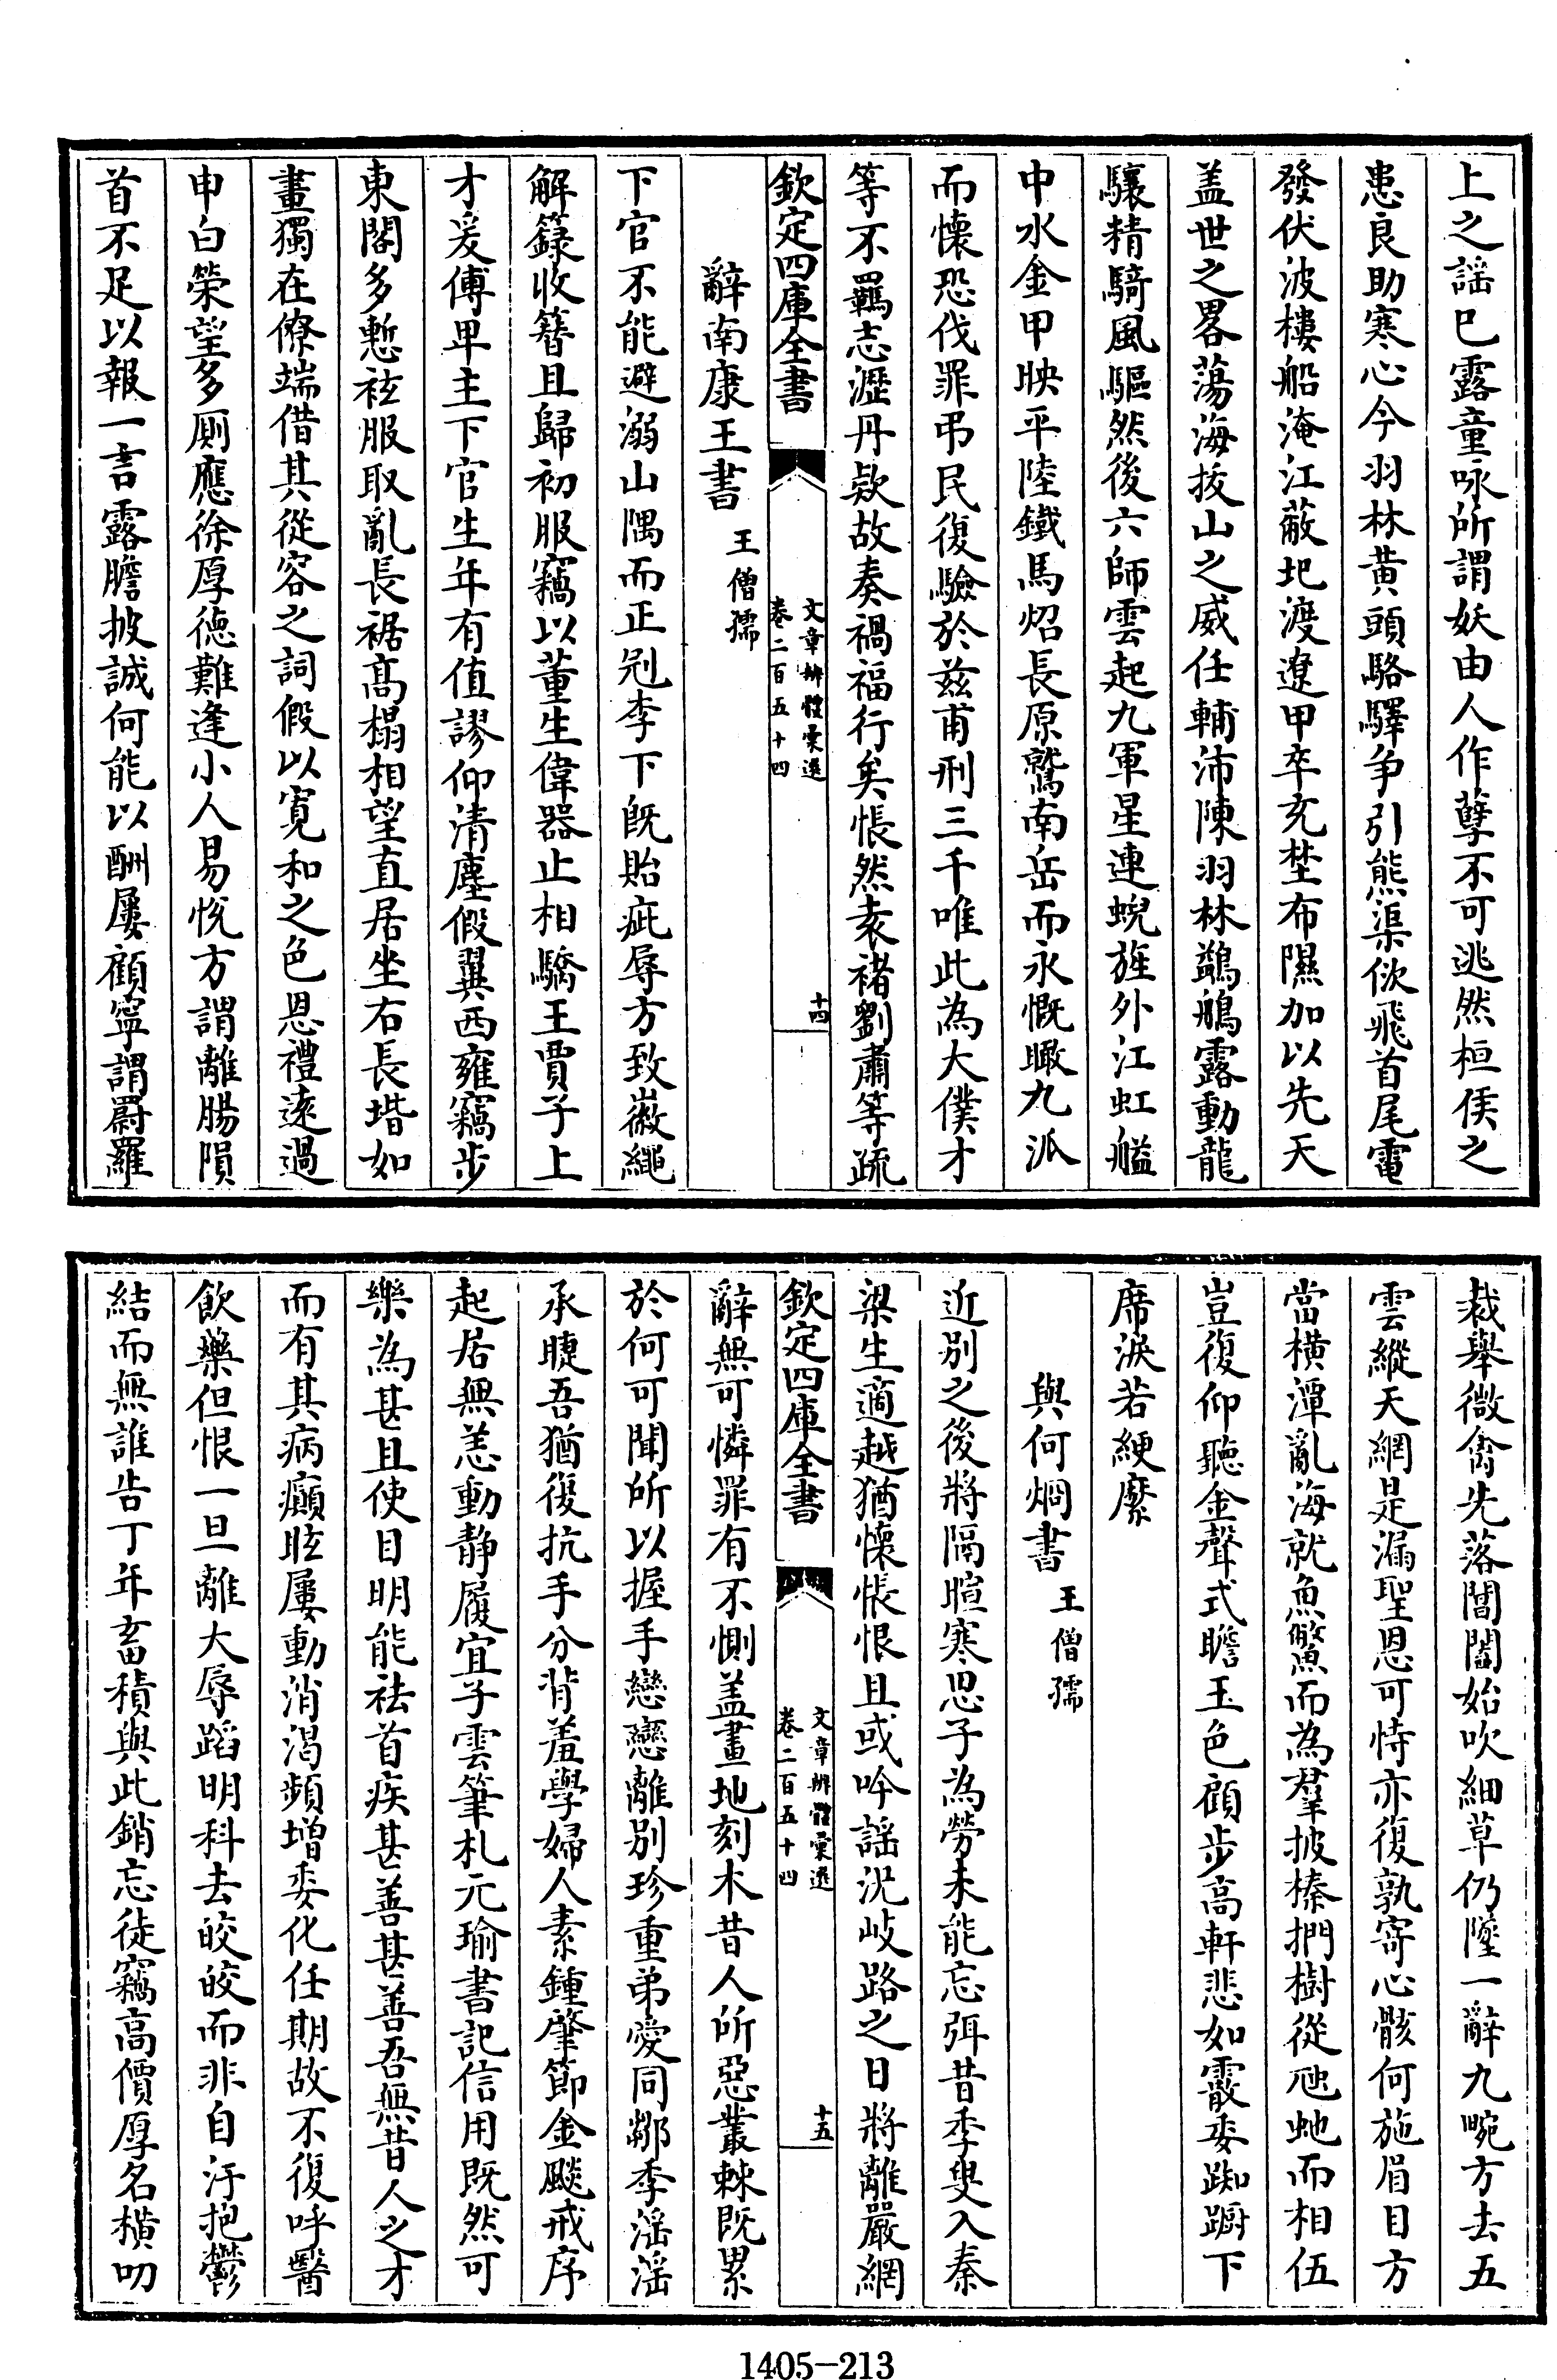 上之謡已露童咏所謂妖由人作孽不可逃然桓侯之
患良助寒心今羽林黄頭駱驛争引熊渠佽飛首尾電
發伏波樓船淹江蔽圯渡遼甲卒充埜布隰加以先天
盖世之畧蕩海拔山之威任輔沛陳羽林鷁鵃露動龍
驤精騎風驅然後六師雲起九軍星連蜺旌外江虹艗
中水金甲映平陸鐵馬炤長原鷲南岳而永慨瞰九派
而懷恐伐罪弔民復驗於兹甫刑三千唯此為大僕才
等不羈志瀝丹欵故奏禍福行矣悵然袁褚劉肅等疏
欽定四庫全書
文章辨體彙選
卷二百五十四
十四
辭南康王書
王僧孺
下官不能避溺山隅而正冠李下旣貽疵辱方致徽繩
解籙收簪且歸初服竊以董生偉器止相驕王賈子上
才爰傅卑主下官生年有值謬仰清塵假翼西雍竊步
東閣多慙袨服取亂長裾髙榻相望直居坐右長堦如
畫獨在僚端借其從容之詞假以寛和之色恩禮逺過
申白榮望多厠應徐厚徳難逢小人易恱方謂離腸隕
首不足以報一言露膽披誠何能以酬屢顧寧謂罻羅
裁舉微禽先落閶闔始吹細草仍墜一辭九畹方去五
雲縱天網是漏聖恩可恃亦復孰寄心骸何施眉目方
當横潭亂海就魚鱉而為羣披榛捫樹從虺虵而相伍
豈復仰聽金聲式瞻玉色顧步高軒悲如霰委踟蹰下
席淚若綆縻
與何烱書
王僧孺
近别之後將隔暄寒思子為勞未能忘弭昔季叟入秦
梁生適越猶懷悵恨且或吟謡况岐路之日將離嚴網
欽定四庫全書
文章辨體彙選
卷二百五十四
十五
辭無可憐罪有不惻盖畫地刻木昔人所惡叢棘既累
於何可聞所以握手戀戀離别珍重弟愛同鄒季滛滛
承睫吾猶復抗手分背羞學婦人素鍾肇節金飈戒序
起居無恙動静履宜子雲筆札元瑜書記信用既然可
樂為甚且使目明能祛首疾甚善甚善吾無昔人之才
而有其病癲眩屢動消渇頻增委化任期故不復呼醫
飲藥但恨一旦離大辱蹈明科去皎皎而非自汙抱鬱
結而無誰告丁年畜積與此銷忘徒竊高價厚名横叨
1405-213